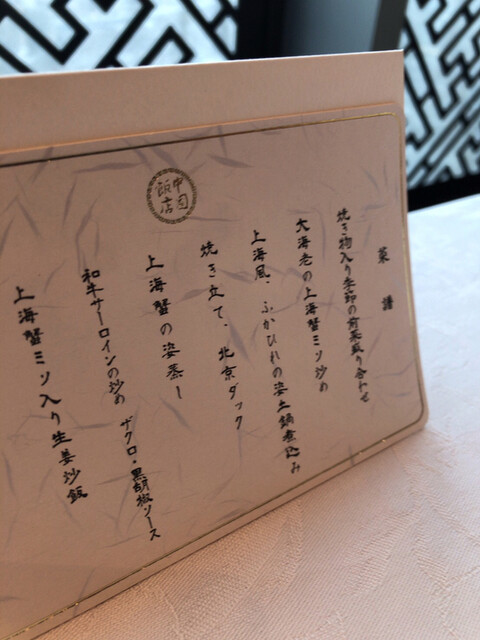 菜譜
焼き物入り季節の前菜盛り合わせ
大海老の上海蟹ミソ炒め
上海風、ふかひれの姿土鍋煮込み
焼き立て、北京ダック
上海蟹の姿蒸し
和牛サーロインの炒め ザクロ・黒胡椒ソース
上海蟹ミソ入り生姜炒飯
中国飯店